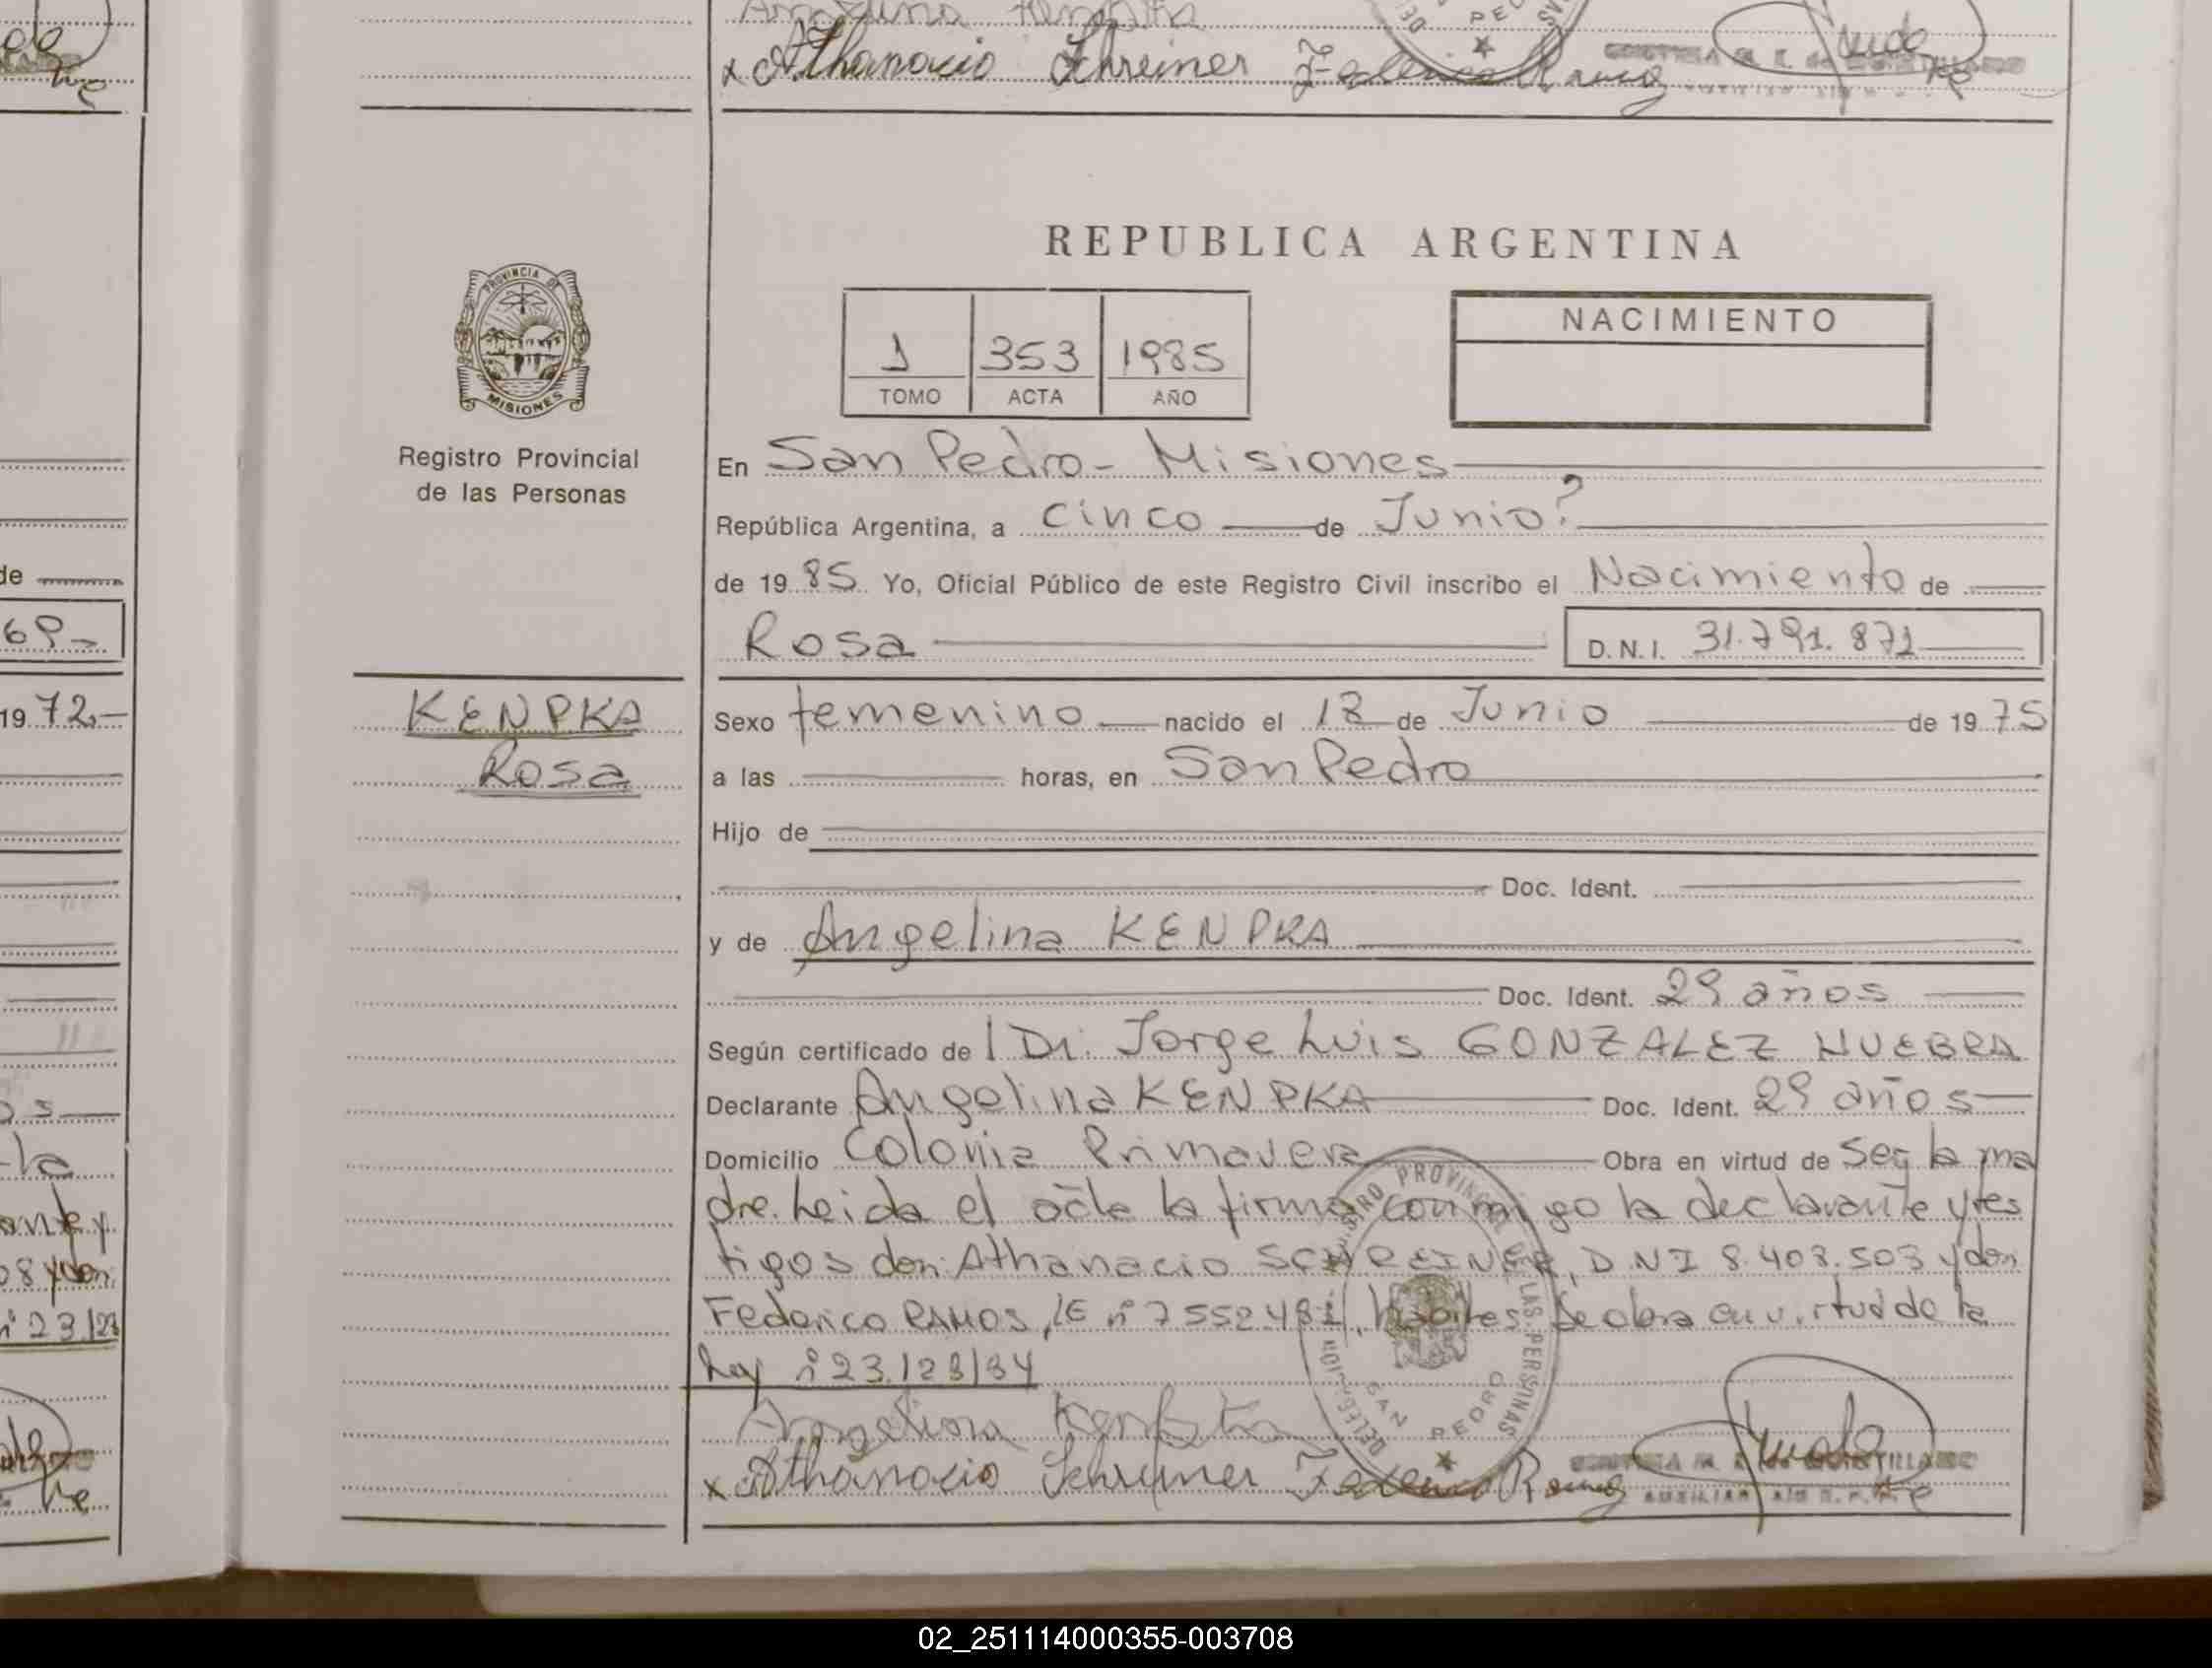 Athanacio Schreiner
REPUBLICA ARGENTINA
PROVINCIA DE
MISIONES
Registro Provincial
de las Personas
1 353 1985
TOMO ACTA AÑO
NACIMIENTO
En San Pedro - Misiones
República Argentina, a cinco de Junio
de 1985 Yo, Oficial Público de este Registro Civil inscribo el Nacimiento de
Rosa D.N.I. 31.791.871
KENPKA
Rosa
Sexo femenino nacido el 18 de Junio de 1975
a las horas, en San Pedro
Hijo de
Doc. Ident.
y de Angelina KENPKA
Doc. Ident. 29 años
Según certificado de Dr. Jorge Luis GONZALEZ HUEBRA
Declarante Angelina KENPKA Doc. Ident. 29 años
Domicilio Colonia Primavera Obra en virtud de ser la ma
dre. Leida el acta la firma conmigo la declarante y tes
tigos don: Athanacio SCHREINER, D.N.I 8.408.503 y don
Federico RAMOS, LE nº 7552481, habiles. Se obra en virtud de la
Ley nº 23.128/84
REGISTRO PROVINCIAL DE LAS PERSONAS
DELEGACION SAN PEDRO
Athanacio Schreiner Federico Ramos
de
1972
02_251114000355-003708